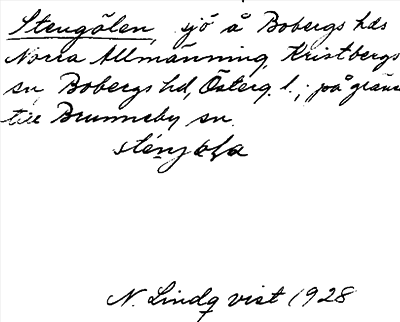 Stengölen, sjö å Bobergs hds
Norra Allmänning, Kristbergs
sn, Bobergs hd, Österg. l.; på gräns
till Brunneby sn.
N. Lindqvist 1928